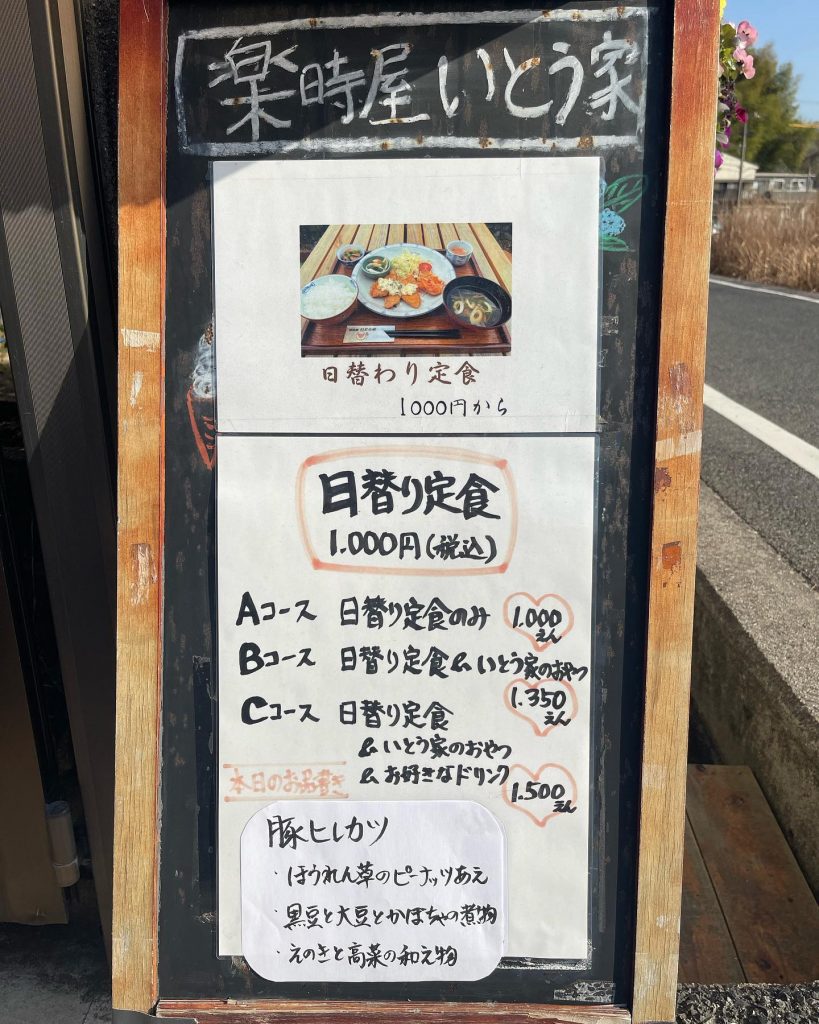 楽時屋 いとう家
日替わり定食
1000円から
日替り定食
1.000円(税込)
Aコース 日替り定食のみ 1.000えん
Bコース 日替り定食&いとう家のおやつ
1.350えん
Cコース 日替り定食
&いとう家のおやつ
&お好きなドリンク
1.500えん
本日のお品書き
豚ヒレカツ
・ほうれん草のピーナッツあえ
・黒豆と大豆とかぼちゃの煮物
・えのきと高菜の和え物